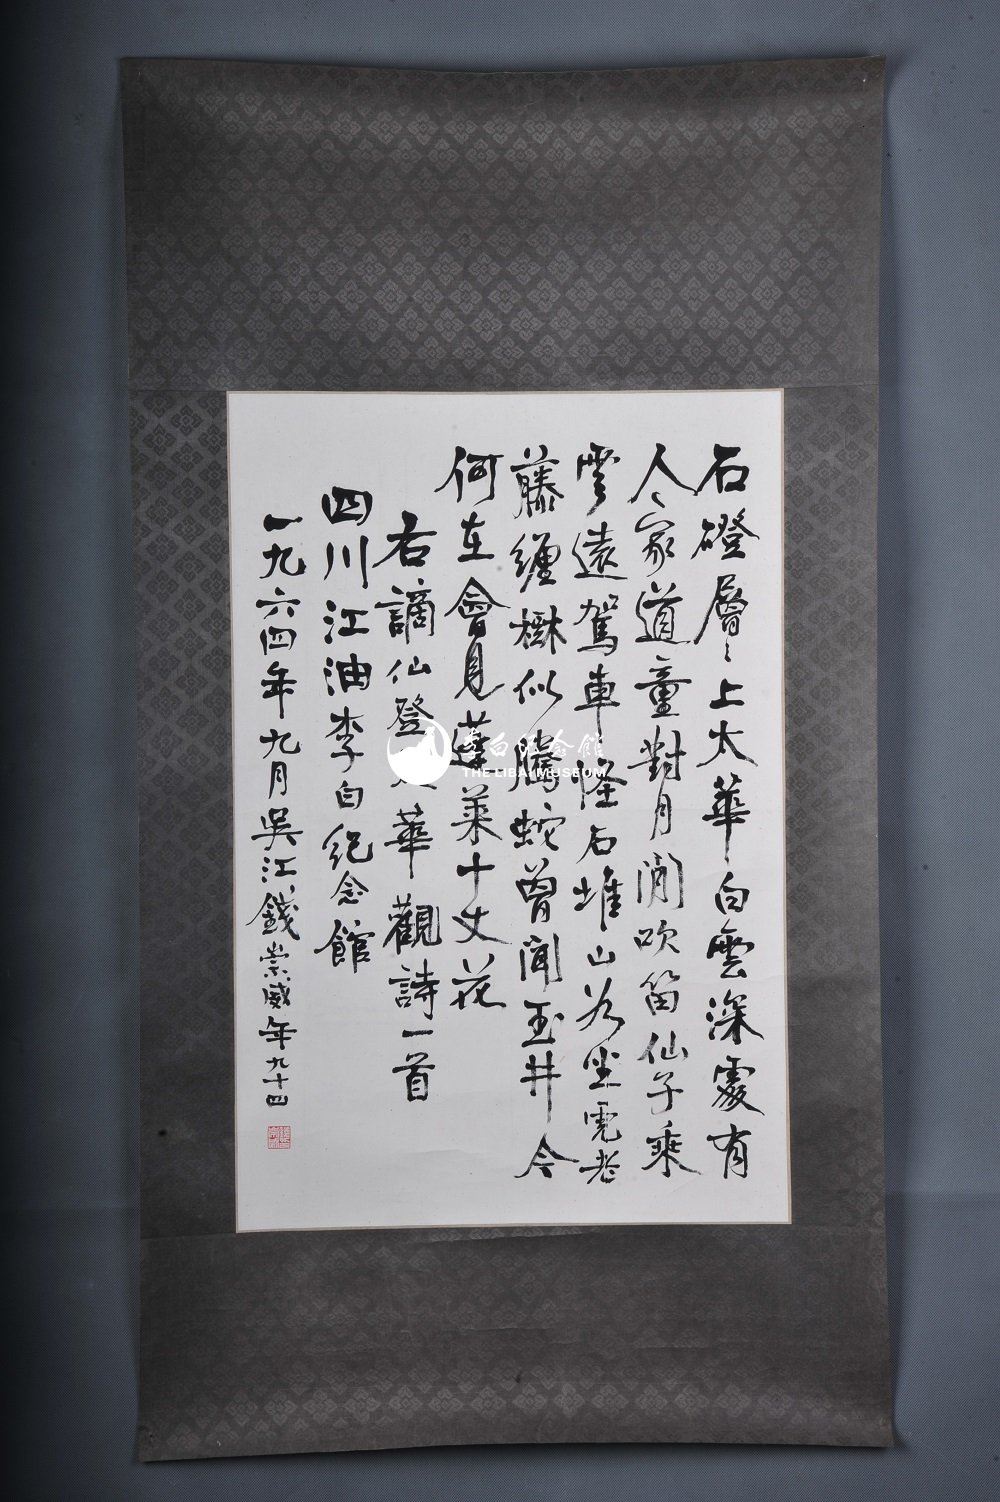 石磴層〻上太華白雲深處有
人〻家道童對月閒吹笛仙子乘
雲遠駕車怪石堆山如坐虎老
藤纏樹似騰蛇曾聞玉井今
何在會見蓬萊十丈花
右謫仙登太華觀詩一首
四川江油李白紀念館
一九六四年九月吳江錢崇威年九十四
李白紀念館
THE LIBAI MUSEUM